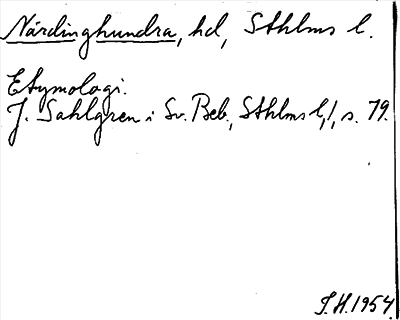 Närdinghundra, hd, Sthlms l.
Etymologi.
J. Sahlgren i Sv. Beb., Sthlms l, 1, s. 79.
S.H. 1954